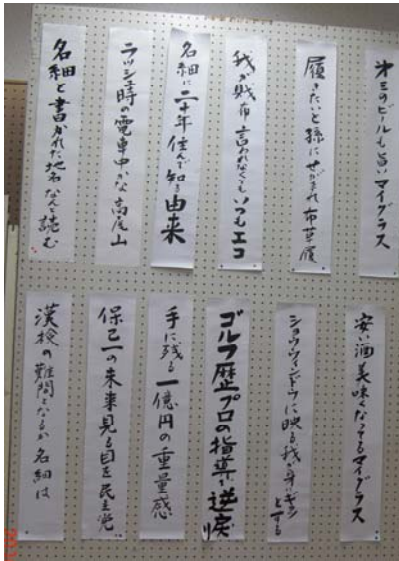 才三のビールも旨いマイグラス
履きたいと孫にせがまれ布草履
我が財布言われなくもいつもエコ
名細に二十年住んで知る由来
ラッシュ時の電車中かな高尾山
名細と書かれた地名なんと読む
安い酒美味くなってるマイグラス
ショウウインドウに映る我が身にギョッとする
手に残る一億円の重量感
ゴルフ歴プロの指導で逆戻り
保己一の未来見る目を民主党
漢検の難問となるか名細は